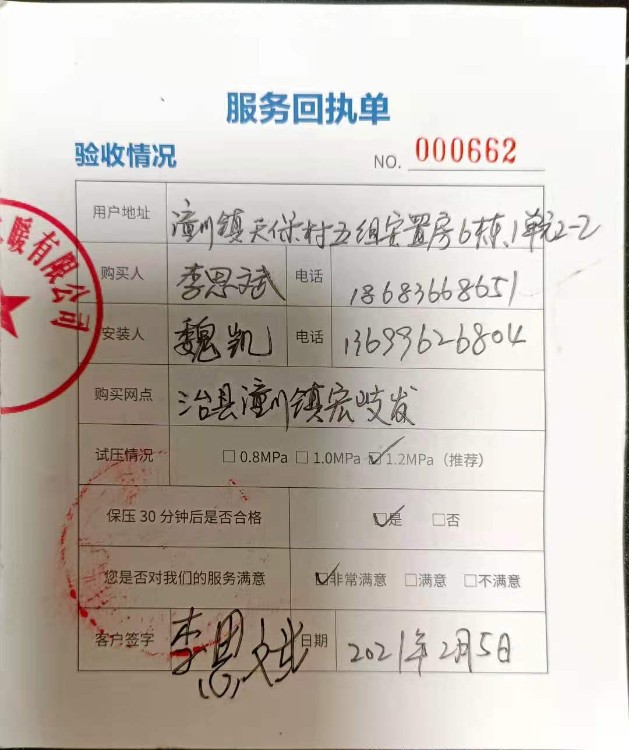 服务回执单
验收情况 NO. 000662
用户地址 潼川镇天保村五组安置房6栋1单元2-2
购买人 李思斌 电话 18683668651
安装人 魏凯 电话 13699626804
购买网点 治县潼川镇宏岐发
试压情况 □ 0.8MPa □ 1.0MPa ☑ 1.2MPa（推荐）
保压 30 分钟后是否合格 ☑是 □否
您是否对我们的服务满意 ☑非常满意 □满意 □不满意
客户签字 李思斌 日期 2021年2月5日
暖有限公司